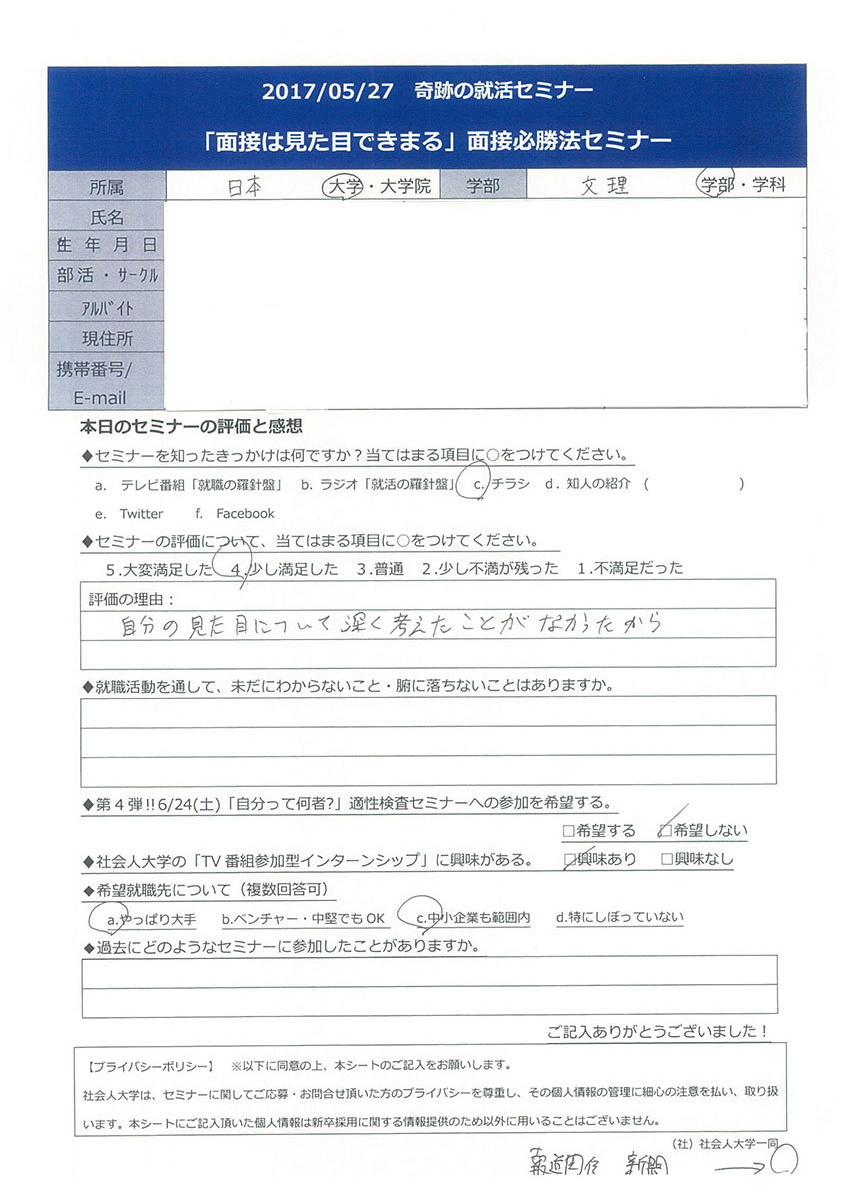 2017/05/27　奇跡の就活セミナー
「面接は見た目できまる」面接必勝法セミナー
所属　日本　大学・大学院　学部　文理　学部・学科
氏名
生年月日
部活・サークル
アルバイト
現住所
携帯番号/
E-mail
本日のセミナーの評価と感想
◆セミナーを知ったきっかけは何ですか？当てはまる項目に○をつけてください。
a.　テレビ番組「就職の羅針盤」　b. ラジオ「就活の羅針盤」　c. チラシ　d. 知人の紹介　(　　　　　)
e.　Twitter　　f.　Facebook
◆セミナーの評価について、当てはまる項目に○をつけてください。
５.大変満足した　４.少し満足した　３.普通　２.少し不満が残った　１.不満足だった
評価の理由：
自分の見た目について深く考えたことがなかったから
◆就職活動を通して、未だにわからないこと・腑に落ちないことはありますか。
◆第４弾!!6/24(土)「自分って何者?」適性検査セミナーへの参加を希望する。
□希望する　□希望しない
◆社会人大学の「TV番組参加型インターンシップ」に興味がある。　□興味あり　□興味なし
◆希望就職先について（複数回答可）
a.やっぱり大手　b.ベンチャー・中堅でもOK　c.中小企業も範囲内　d.特にしぼっていない
◆過去にどのようなセミナーに参加したことがありますか。
ご記入ありがとうございました！
【プライバシーポリシー】　※以下に同意の上、本シートのご記入をお願いします。
社会人大学は、セミナーに関してご応募・お問合せ頂いた方のプライバシーを尊重し、その個人情報の管理に細心の注意を払い、取り扱
います。本シートにご記入頂いた個人情報は新卒採用に関する情報提供のため以外に用いることはございません。
（社）社会人大学一同
新聞